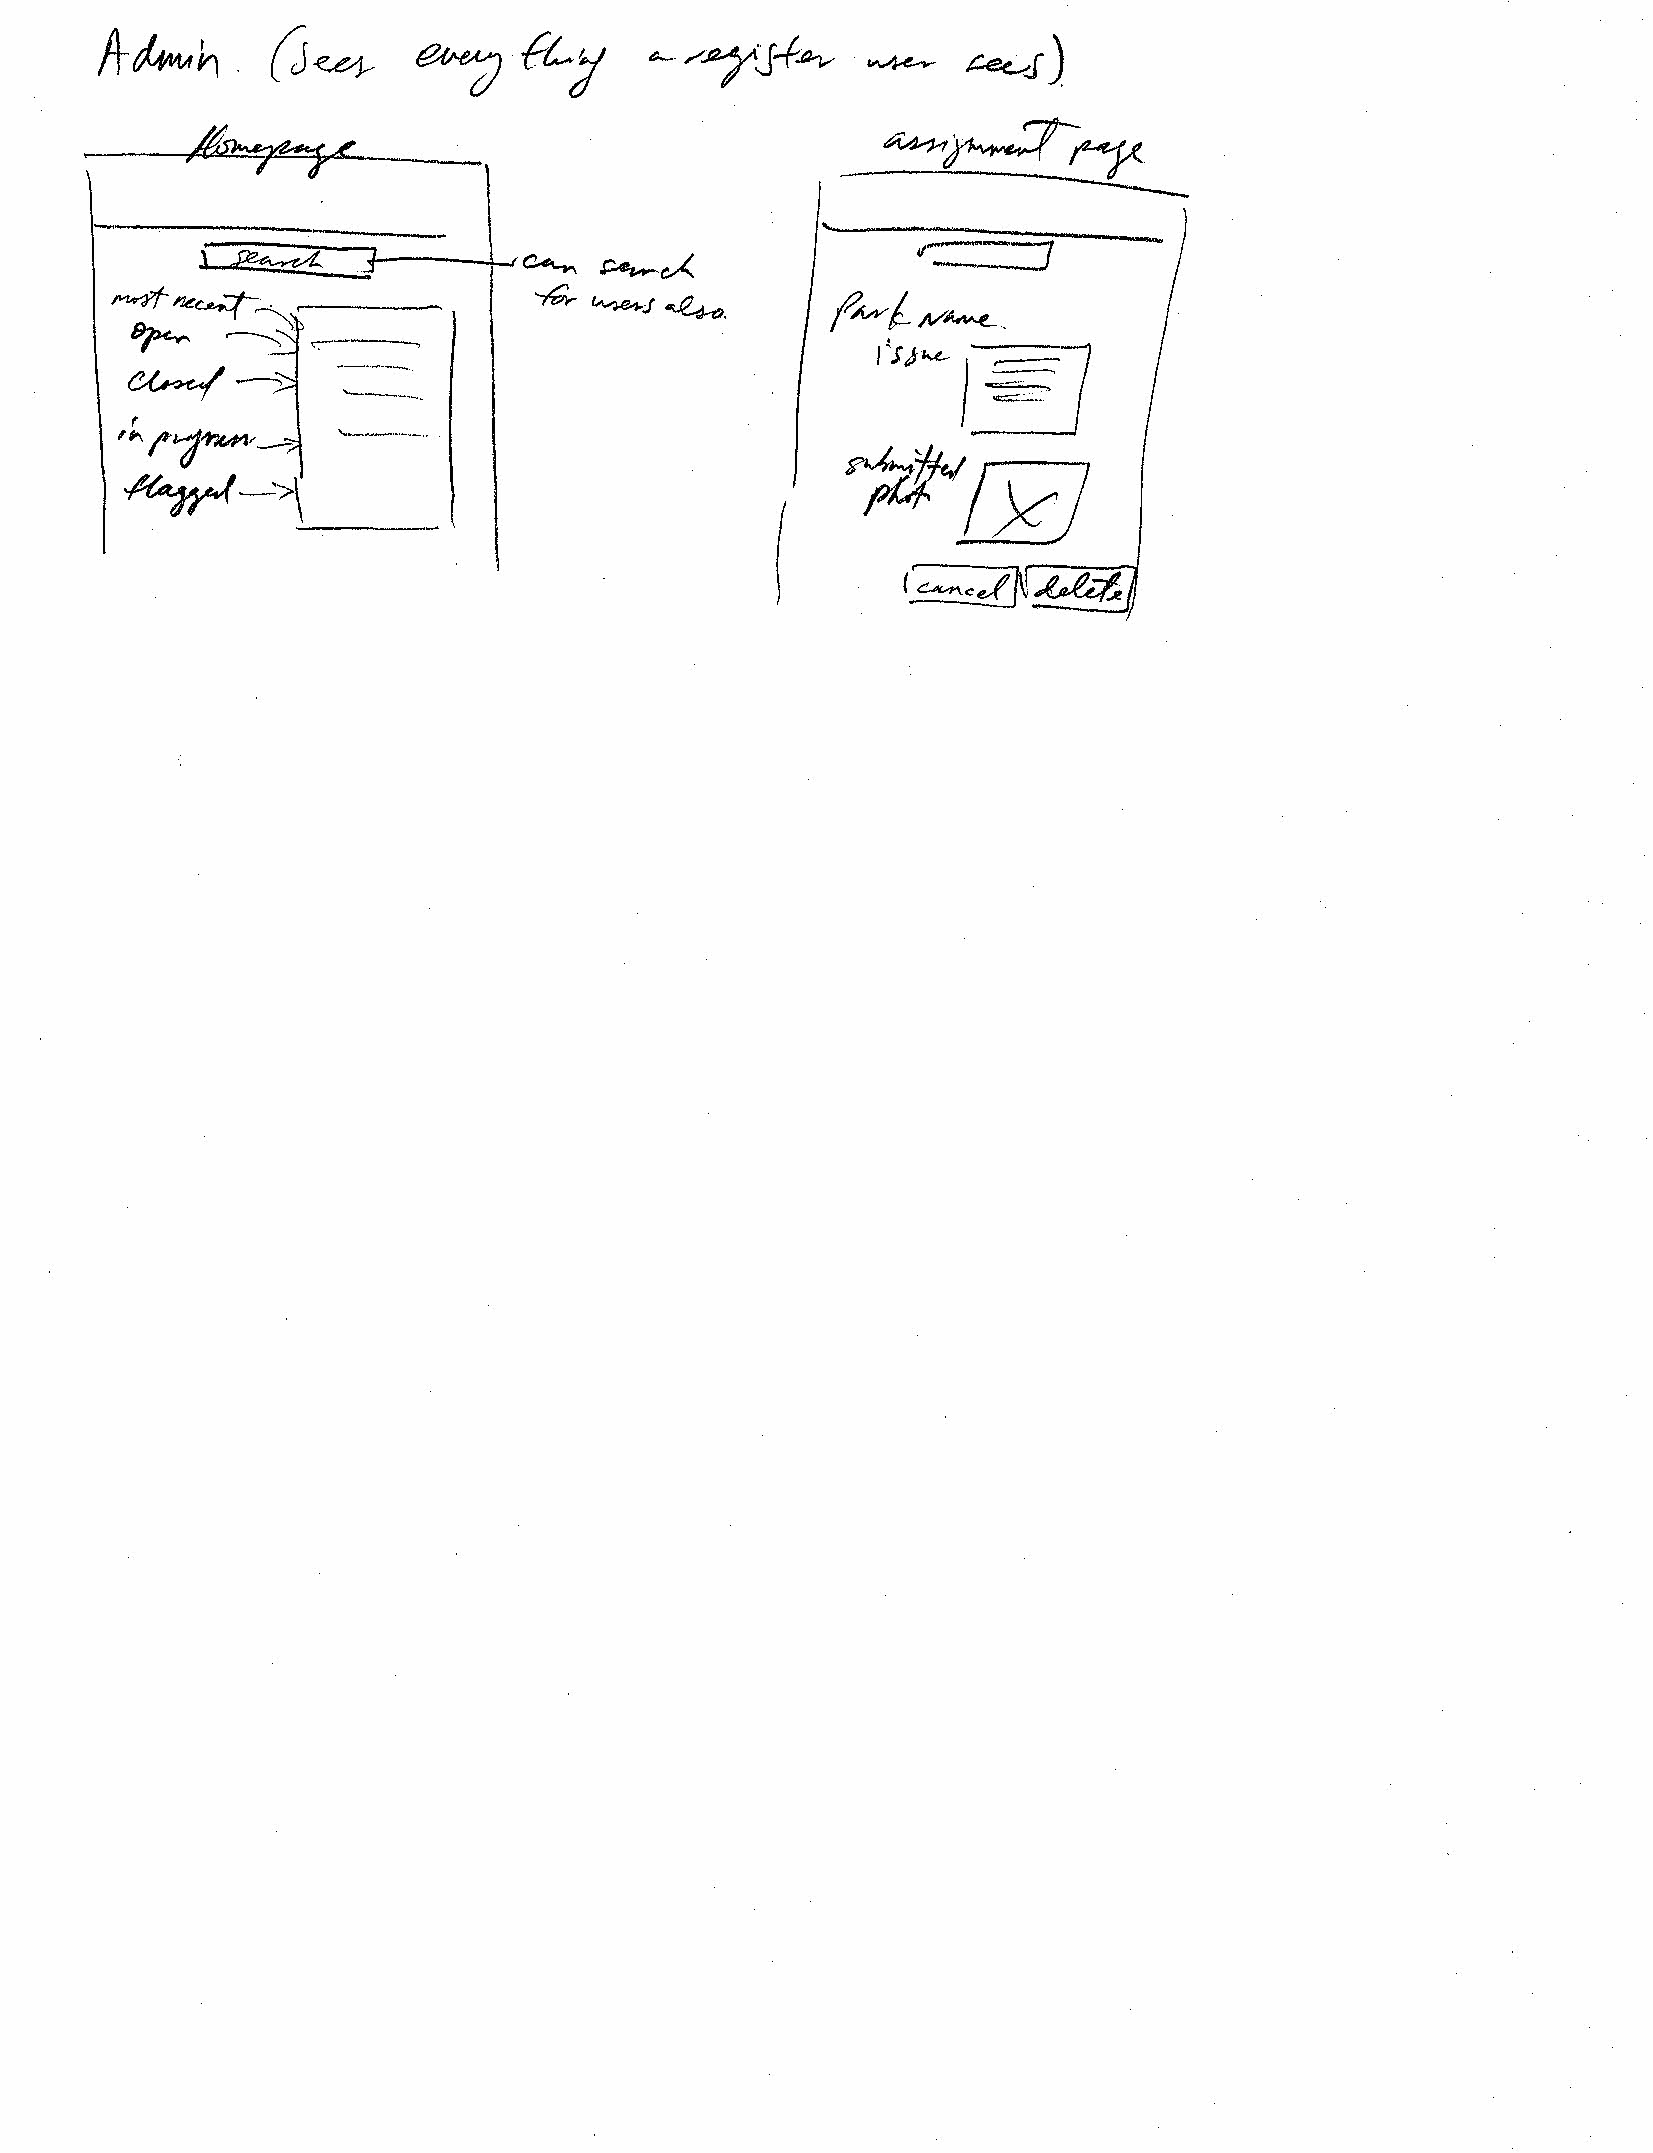 Admin. (sees everything a register user sees)
Homepage
search
can search
for users also.
most recent
open
closed
in progress
flagged
assignment page
Park Name.
issue
submitted
photo
cancel
delete